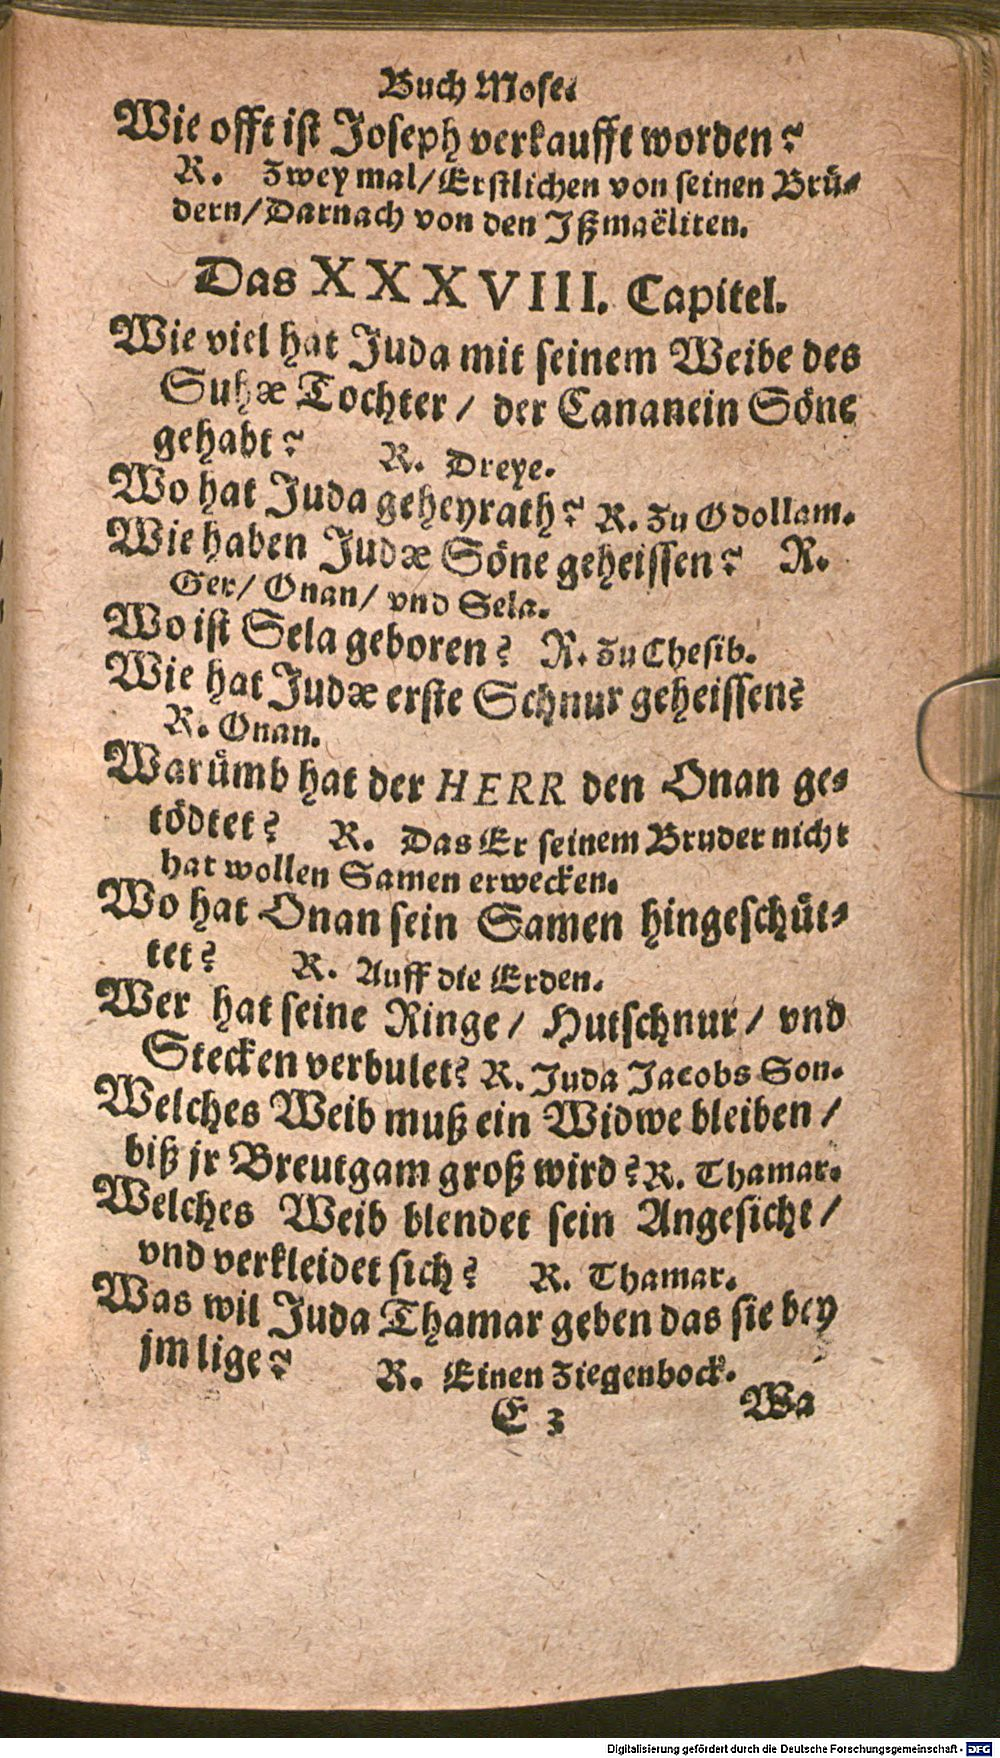 Buch Mose.
Wie offt ist Joseph verkaufft worden?
R. Zwey mal/Erstlichen von seinen Brü-
dern/Darnach von den Ißmaëliten.
Das XXXVIII. Capitel.
Wie viel hat Juda mit seinem Weibe des
Suhæ Tochter / der Cananein Söne
gehabt? R. Dreye.
Wo hat Juda geheyrath? R. Zu Odollam.
Wie haben Judæ Söne geheissen? R.
Ger/ Onan/ vnd Sela.
Wo ist Sela geboren? R. Zu Chesib.
Wie hat Judæ erste Schnur geheissen?
R. Onan.
Warümb hat der HERR den Onan ge-
tödtet? R. Das Er seinem Bruder nicht
hat wollen Samen erwecken.
Wo hat Onan sein Samen hingeschüt-
tet? R. Auff die Erden.
Wer hat seine Ringe/ Hutschnur/ vnd
Stecken verbulet? R. Juda Jacobs Son.
Welches Weib muß ein Widwe bleiben/
biß jr Breutgam groß wird? R. Thamar.
Welches Weib blendet sein Angesicht/
vnd verkleidet sich? R. Thamar.
Was wil Juda Thamar geben das sie bey
jm lige? R. Einen Ziegenbock.
E 3 Wa
Digitalisierung gefördert durch die Deutsche Forschungsgemeinschaft - DFG